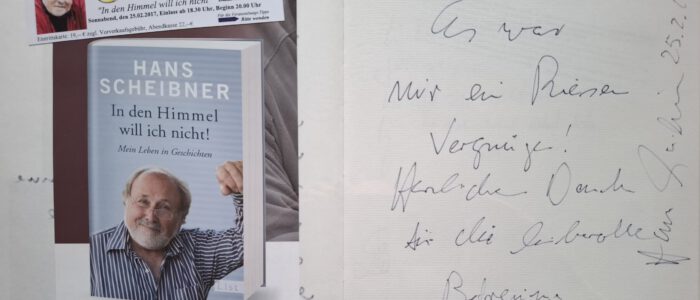 "In den Himmel will ich nicht"
Sonnabend, den 25.02.2017, Einlass ab 18.30 Uhr, Beginn 20.00 Uhr
Eintrittskarte: 18,- € zzgl. Vorverkaufsgebühr, Abendkasse 22,- €
Bitte wenden
HANS
SCHEIBNER
In den Himmel
will ich nicht!
Mein Leben in Geschichten
List
Es war
mir ein Riesen
Vergnügen!
Herzlichen Dank
für die liebevolle
25.2.